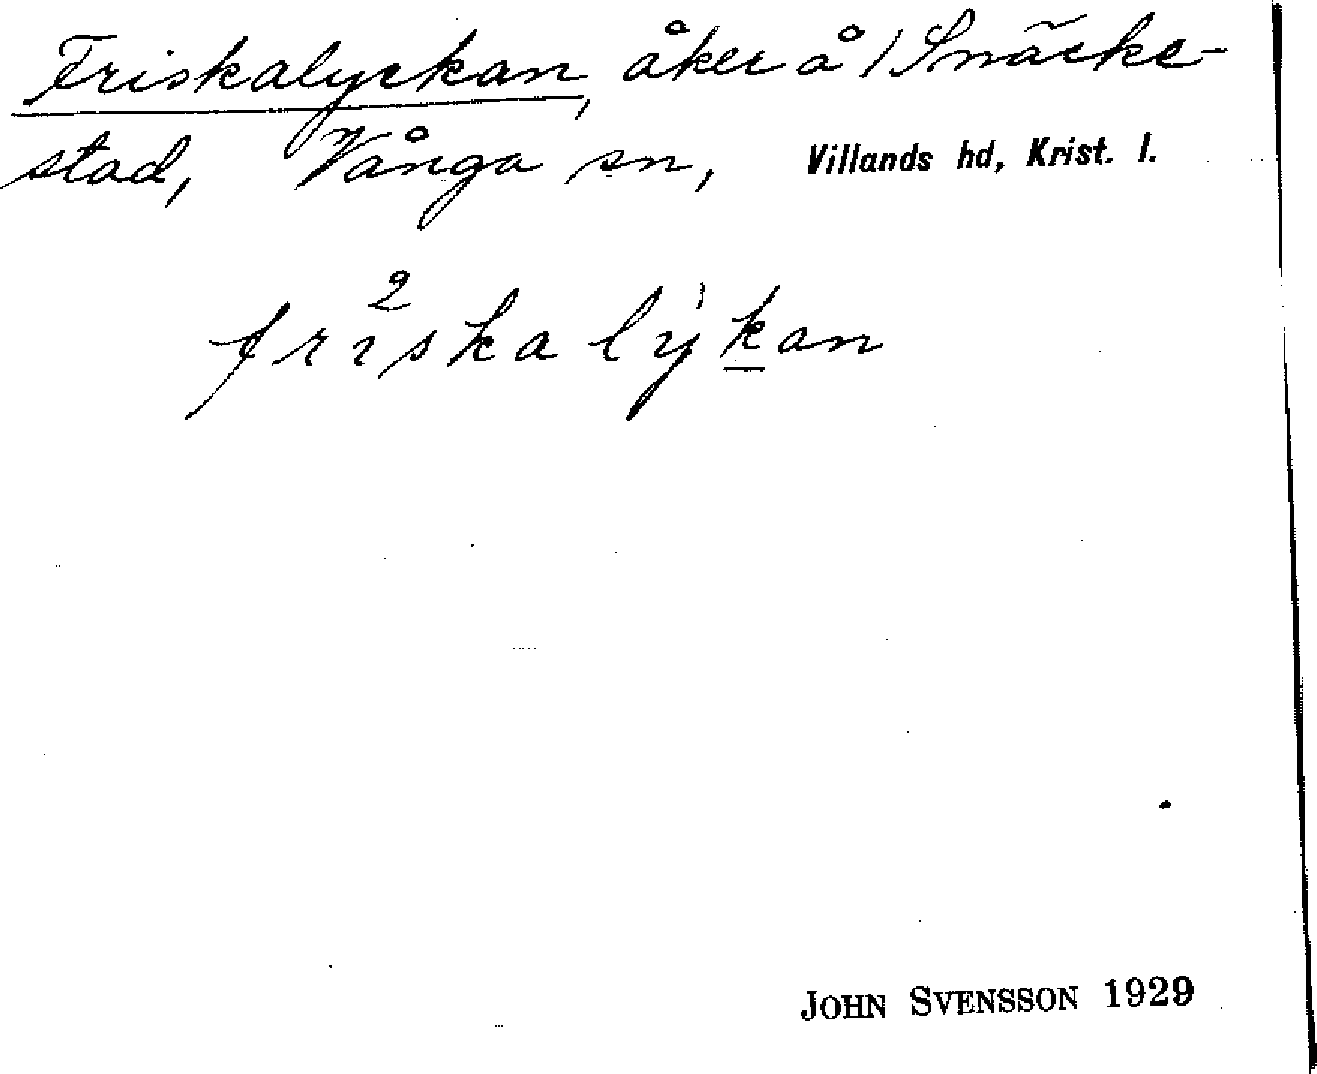 Friskalyckan, åker å 1 Snäcke-
stad, Vånga sn, Villands hd, Krist. l.
2
friskalykan
JOHN SVENSSON 1929